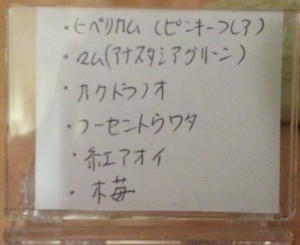 ・ヒペリカム (ピンキーフレア)
・マム(アナスタシアグリーン)
・カクトラノオ
・フーセントウワタ
・紅アオイ
・木苺